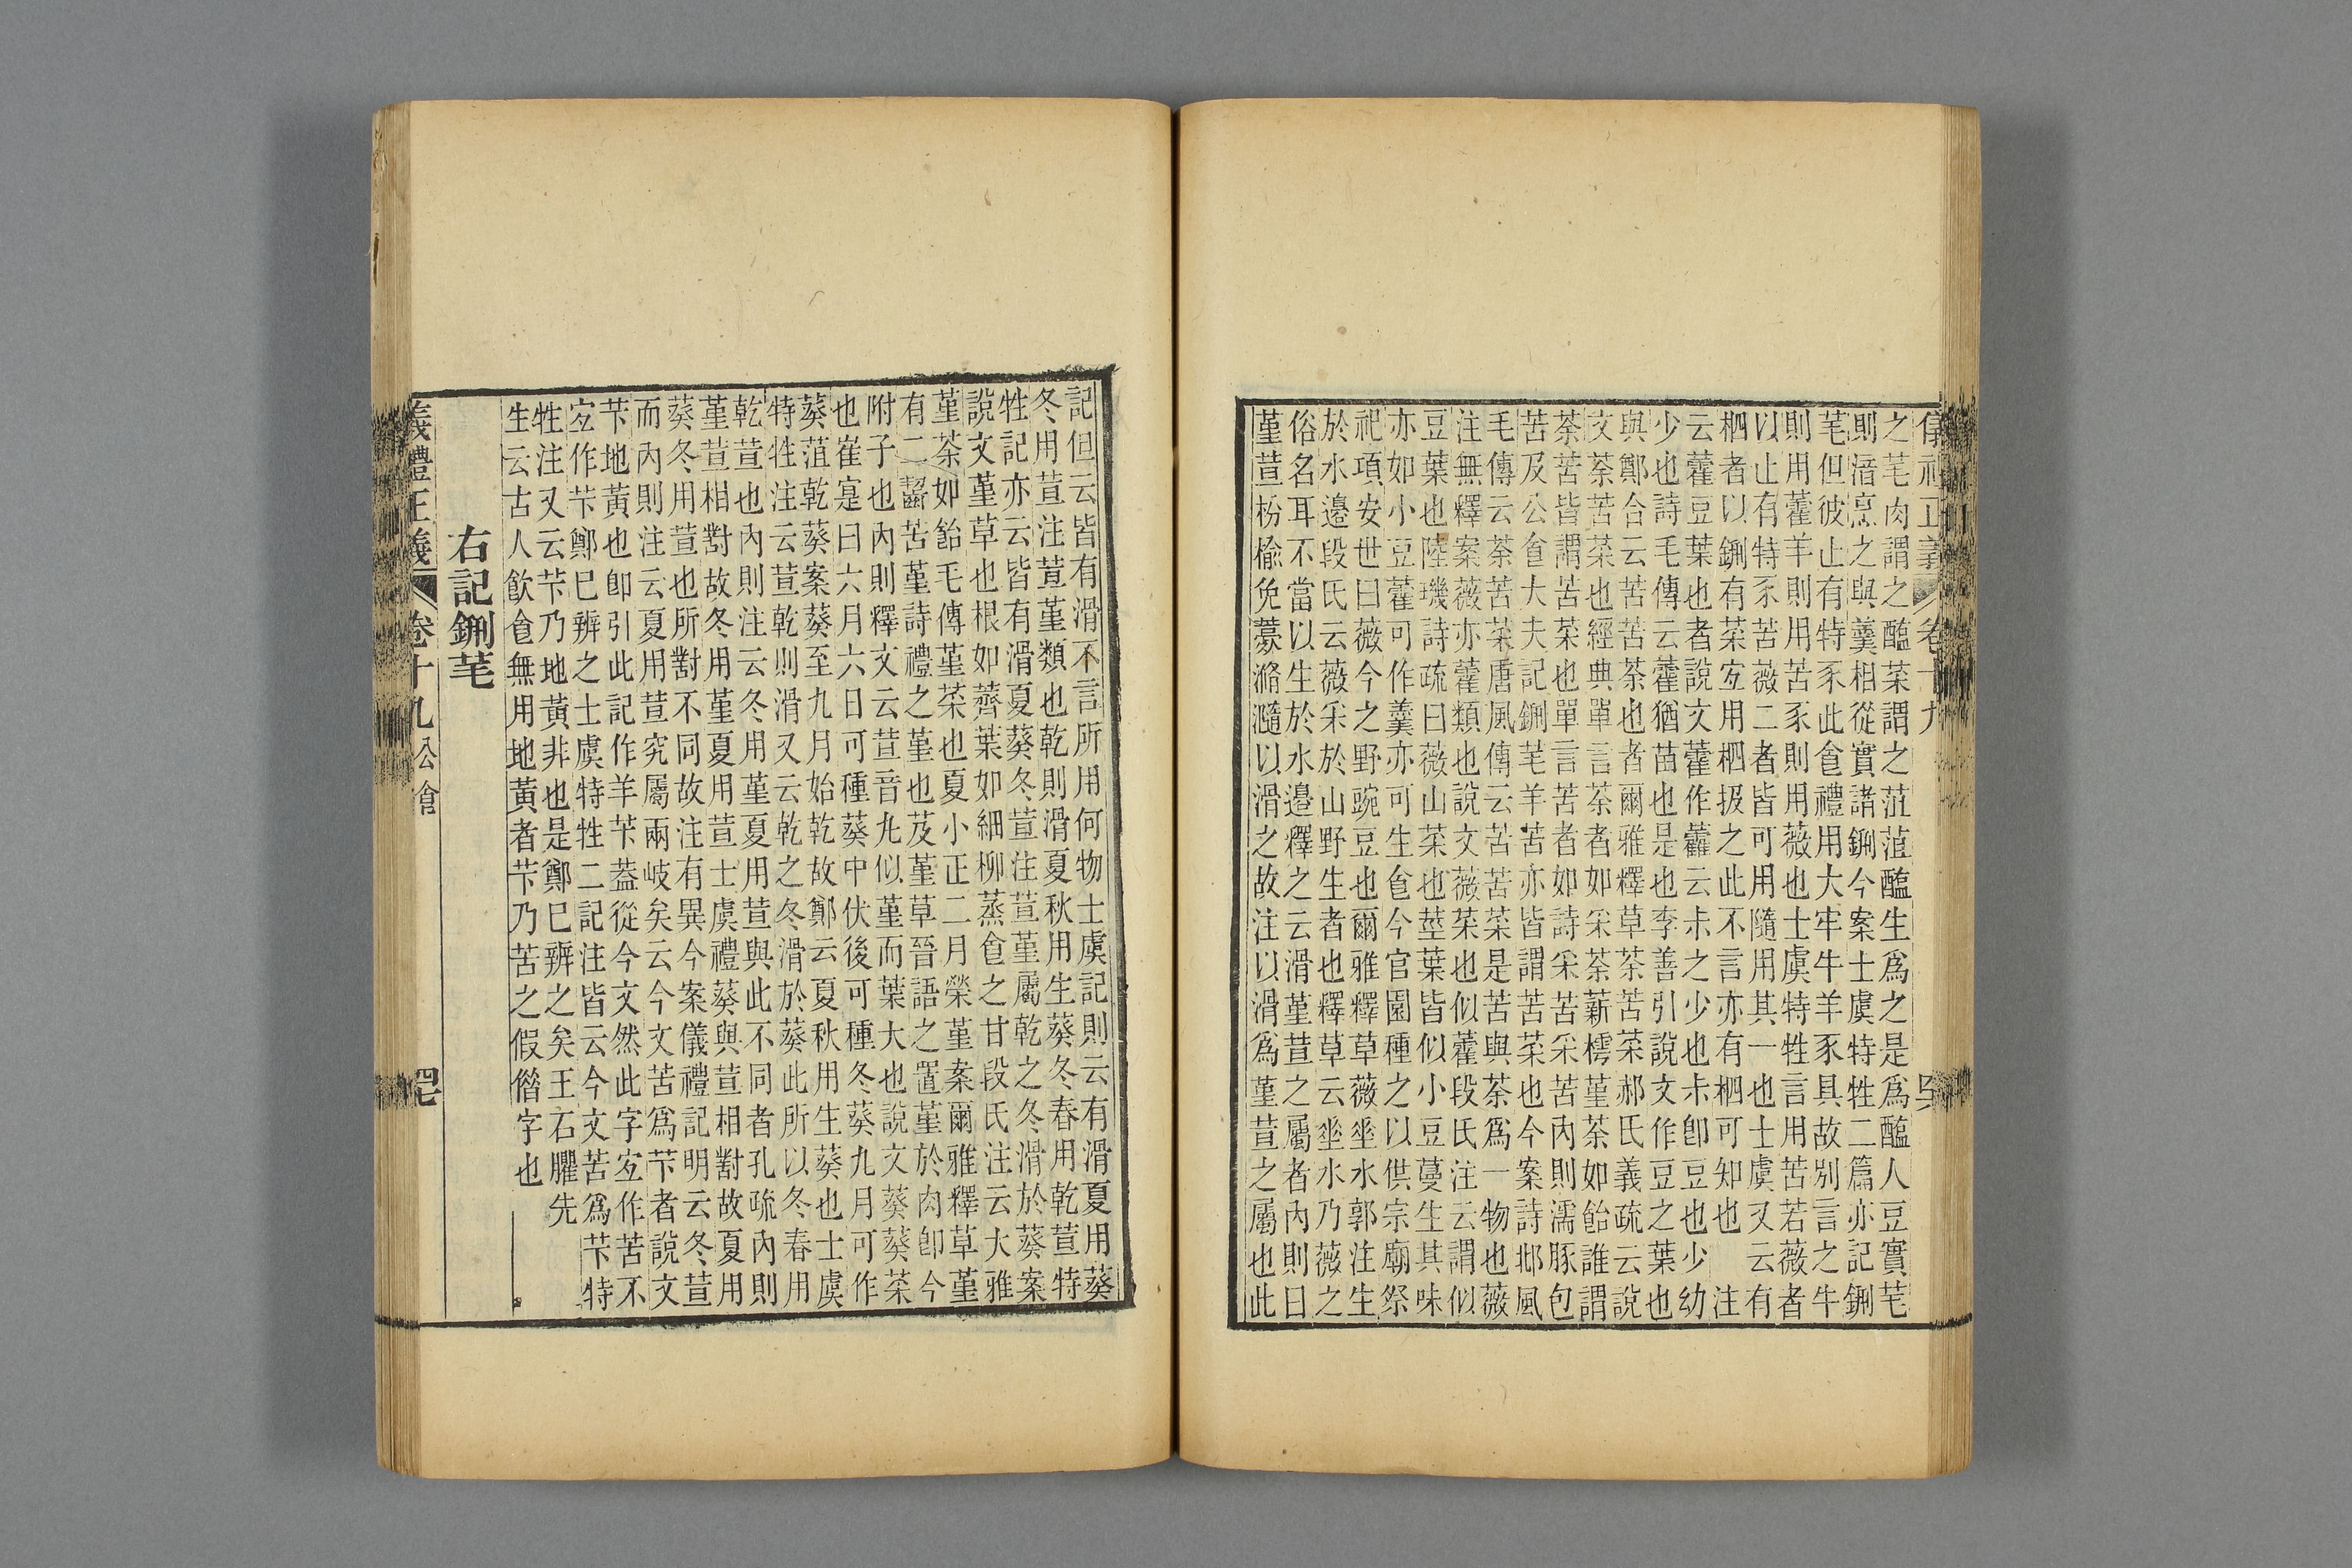 儀禮正義　卷十九　四六
之芼肉謂之醢菜謂之菹菹醢生爲之是爲醢人豆實芼
則湆烹之與羹相從實諸鉶今案士虞特牲二篇亦記鉶
芼但彼止有特豕此食禮用大牢牛羊豕具故別言之牛
則用藿羊則用苦豕則用薇也士虞特牲言用苦若薇者
以止有特豕苦薇二者皆可用隨用其一也士虞又云有
柶者以鉶有菜宐用柶扱之此不言亦有柶可知也　注
云藿豆葉也者說文藿作䕭云尗之少也尗卽豆也少幼
少也詩毛傳云藿猶苗也是也李善引說文作豆之葉也
與鄭合云苦苦荼也者爾雅釋草荼苦菜郝氏義疏云說
文荼苦菜也經典單言荼者如采荼薪樗堇荼如飴誰謂
荼苦皆謂苦菜也單言苦者如詩采苦采苦內則濡豚包
苦及公食大夫記鉶芼羊苦亦皆謂苦菜也今案詩邶風
毛傳云荼苦菜唐風傳云苦苦菜是苦與荼爲一物也薇
注無釋案薇亦藿類也說文薇菜也似藿段氏注云謂似
豆葉也陸璣詩疏曰薇山菜也莖葉皆似小豆蔓生其味
亦如小豆藿可作羹亦可生食今官園種之以供宗廟祭
祀項安世曰薇今之野豌豆也爾雅釋草薇垂水郭注生
於水邉段氏云薇采於山野生者也釋草云垂水乃薇之
俗名耳不當以生於水邉釋之云滑堇荁之屬者內則曰
堇荁枌楡免薧滫瀡以滑之故注以滑爲堇荁之屬也此
記但云皆有滑不言所用何物士虞記則云有滑夏用葵
冬用荁注荁堇類也乾則滑夏秋用生葵冬春用乾荁特
牲記亦云皆有滑夏葵冬荁注荁堇屬乾之冬滑於葵案
說文堇草也根如薺葉如細柳蒸食之甘段氏注云大雅
堇荼如飴毛傳堇菜也夏小正二月榮堇案爾雅釋草堇
有二齧苦堇詩禮之堇也芨堇草晉語之置堇於肉卽今
附子也內則釋文云荁音丸似堇而葉大也說文葵葵菜
也崔寔曰六月六日可種葵中伏後可種冬葵九月可作
葵菹乾葵案葵至九月始乾故鄭云夏秋用生葵也士虞
特牲注云荁乾則滑又云乾之冬滑於葵此所以冬春用
乾荁也內則注云冬用堇夏用荁與此不同者孔疏內則
堇荁相對故冬用堇夏用荁士虞禮葵與荁相對故夏用
葵冬用荁也所對不同故注有異今案儀禮記明云冬荁
而內則注云夏用荁究屬兩岐矣云今文苦爲芐者說文
芐地黃也卽引此記作羊芐蓋從今文然此字宐作苦不
宐作芐鄭巳辨之士虞特牲二記注皆云今文苦爲芐特
牲注又云芐乃地黃非也是鄭巳辨之矣王石臞先
生云古人飮食無用地黃者芐乃苦之假借字也
右記鉶芼
儀禮正義　卷十九公食　四七